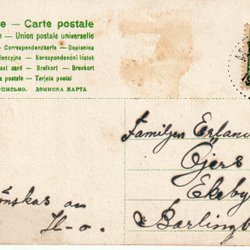 e – Carte postale
– Union postale universelle
– Correspondenzkarte – Dopisnice
encyjna – Korespondenční lístek
ost card – Brefkort – Brevkort
a postale – Tarjeta postal
ПИСЬМО. ДОПИСНА КАРТА
Familjen Erland
Öjers
Ekeby
Barling
önskas av
H–o.